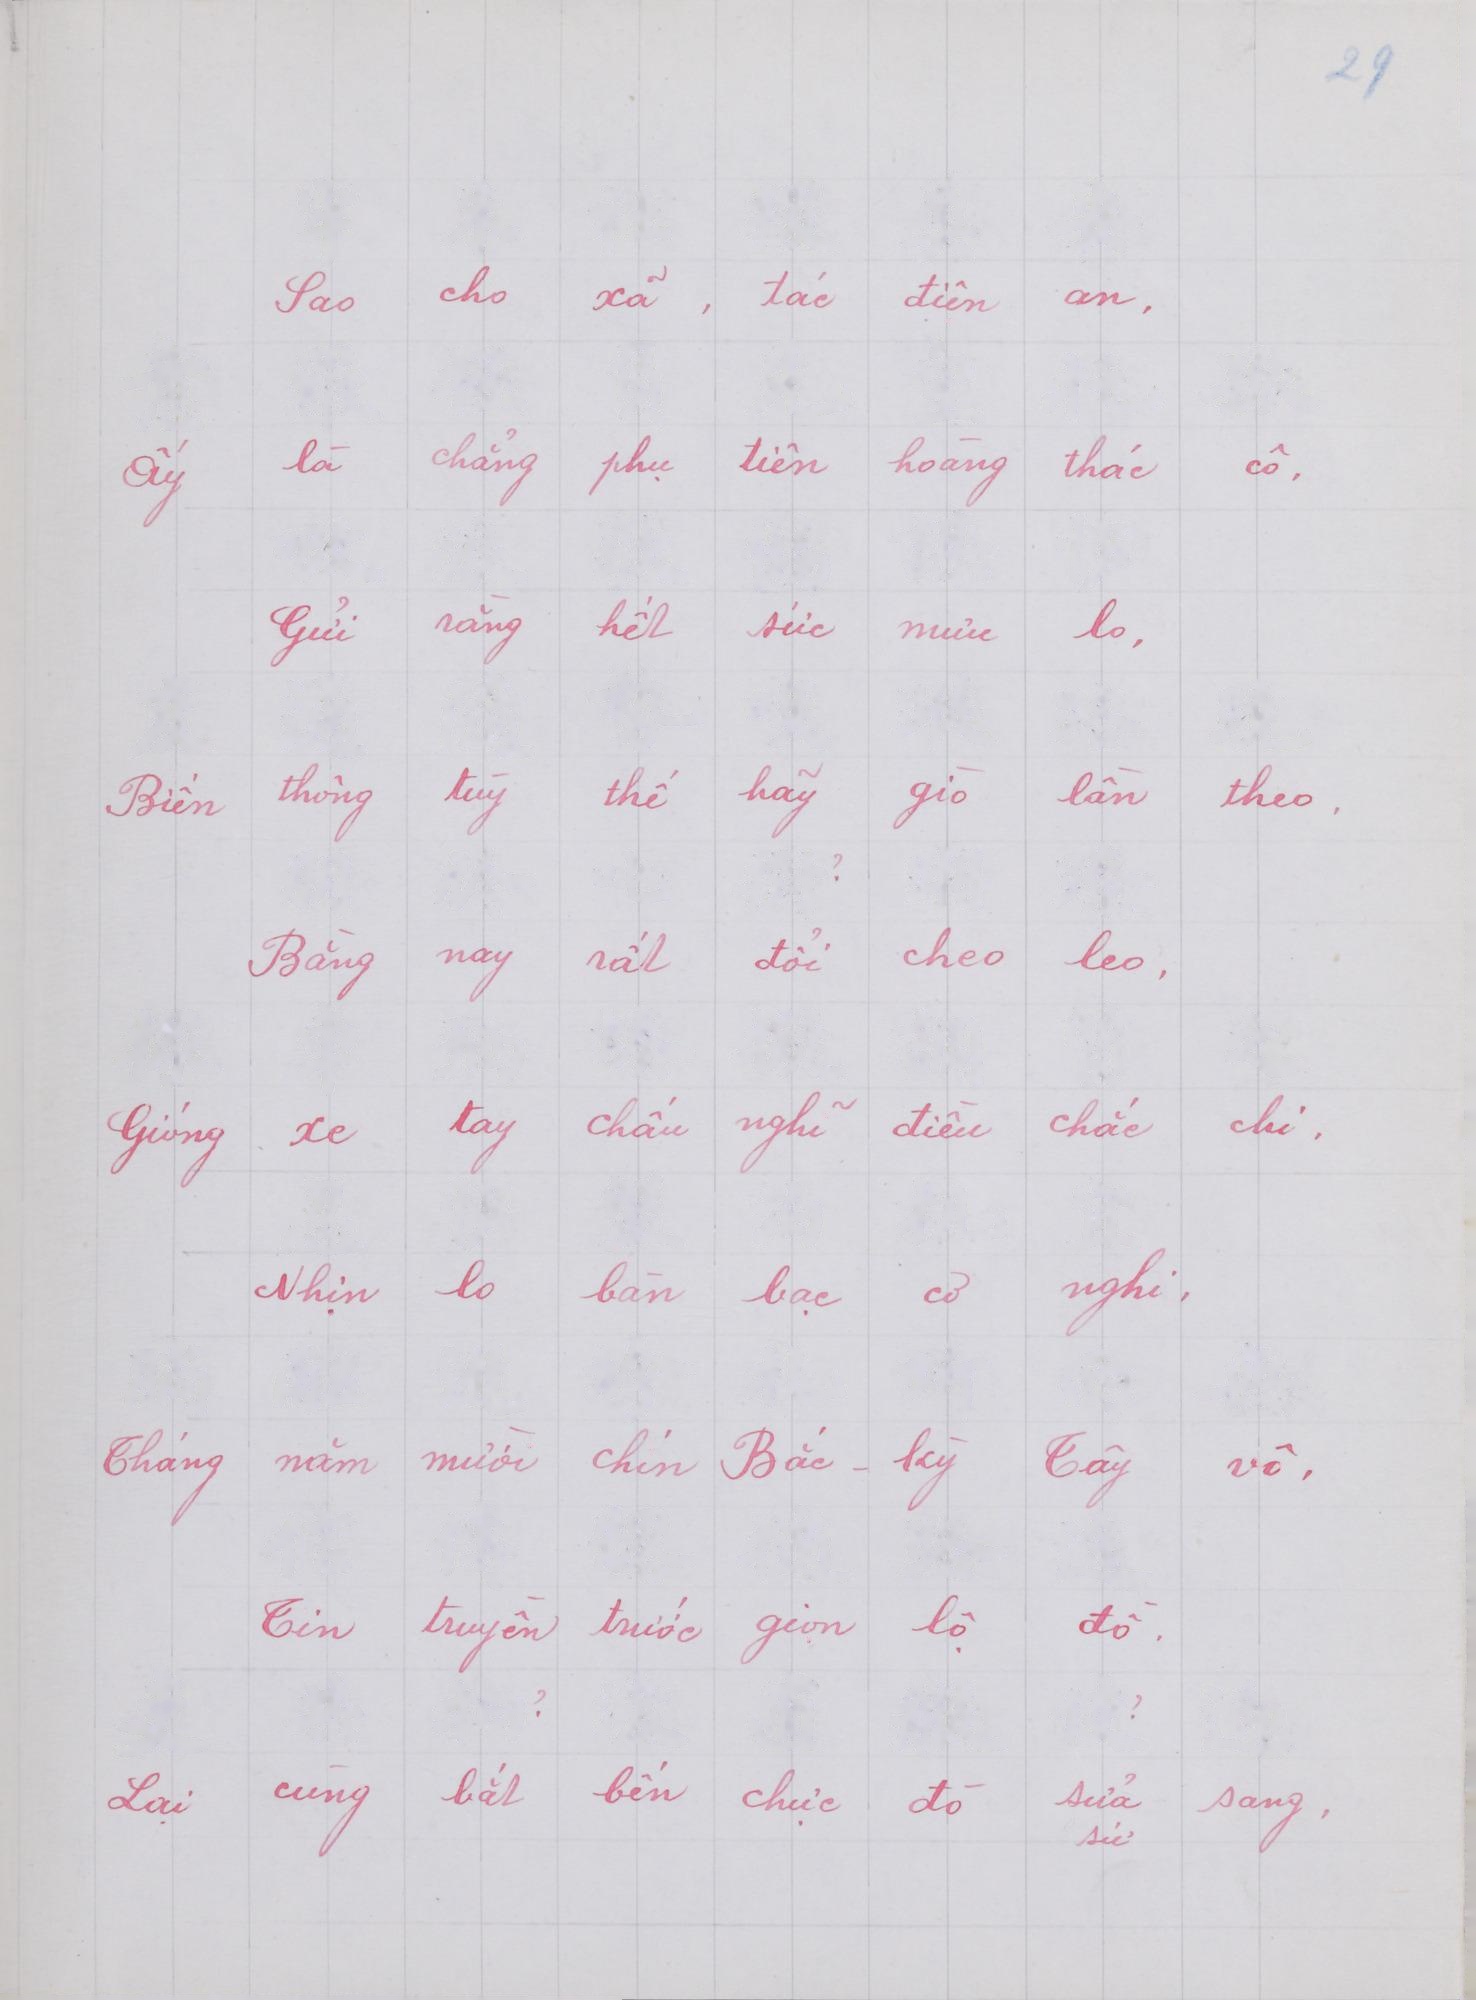 29
Sao cho xã, tác điên an,
Ấy là chẳng phụ tiên hoàng thác cô,
Gửi rằng hết sức mưu lo,
Biến thông tùy thế hãy giờ lần theo,
?
Bằng nay rất đổi cheo leo,
Gióng xe tay chấu nghĩ điều chắc chi,
Nhịn lo bàn bạc cơ nghi,
Tháng năm mười chín Bắc-kỳ Tây vô,
Tin truyền trước giọn lộ đồ.
? ?
Lại cùng bắt bến chực đò sửa sang,
sứ